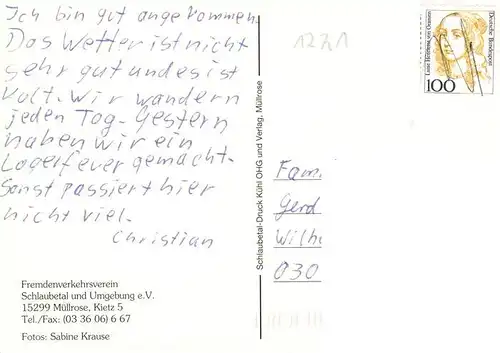 Ich bin gut angekommen.
Das Wetter ist nicht
sehr gut und es ist
kalt. Wir wandern
jeden Tag. Gestern
haben wir ein
Lagerfeuer gemacht.
Sonst passiert hier
nicht viel.
Christian
Fremdenverkehrsverein
Schlaubetal und Umgebung e.V.
15299 Müllrose, Kietz 5
Tel./Fax: (03 36 06) 6 67
Fotos: Sabine Krause
Schlaubetal-Druck Kühl OHG und Verlag, Müllrose
1221
Luise Henriette von Oranien
Deutsche Bundespost
100
Fam.
Gerd
Wilh
030